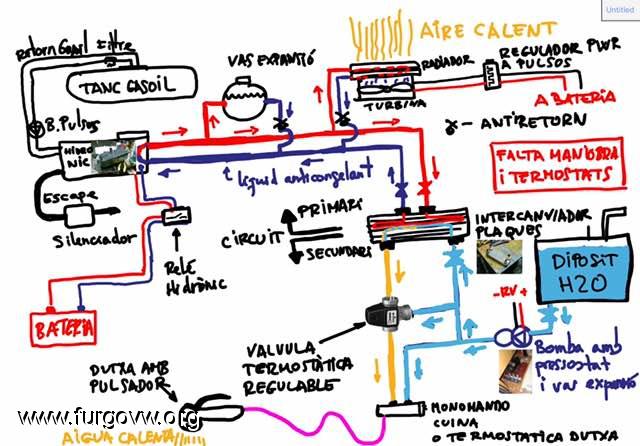 Untitled
AIRE CALENT
Retorn Gasoil
Filtre
TANC GASOIL
VAS EXPANSIÓ
RADIADOR
REGULADOR PWR
A PULSOS
TURBINA
A BATERIA
B. Pulsos
HIDRO
NIC
ANTIRETORN
FALTA MANIOBRA
i TERMOSTATS
Líquid anticongelant
Escape
Silenciador
PRIMARI
CIRCUIT
SECUNDARI
INTERCANVIADOR
PLAQUES
DIPOSIT
H2O
Relé
Hidrònic
BATERIA
-12V+
VALVULA
TERMOSTÀTICA
REGULABLE
Bomba amb
pressostat
i vas expansió
DUTXA AMB
PULSADOR
www.furgovw.org
AIGUA CALENTA
MONOMANDO
CUINA
O TERMOSTATICA DUTXA